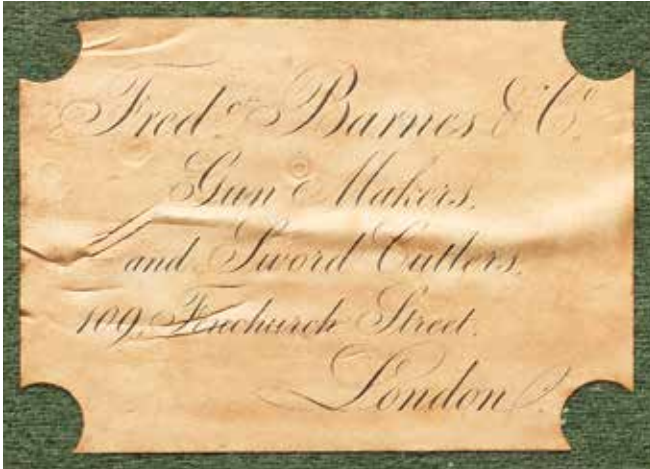 Fredk. Barnes & Co.
Gun Makers,
and Sword Cutlers,
109, Fenchurch Street,
London